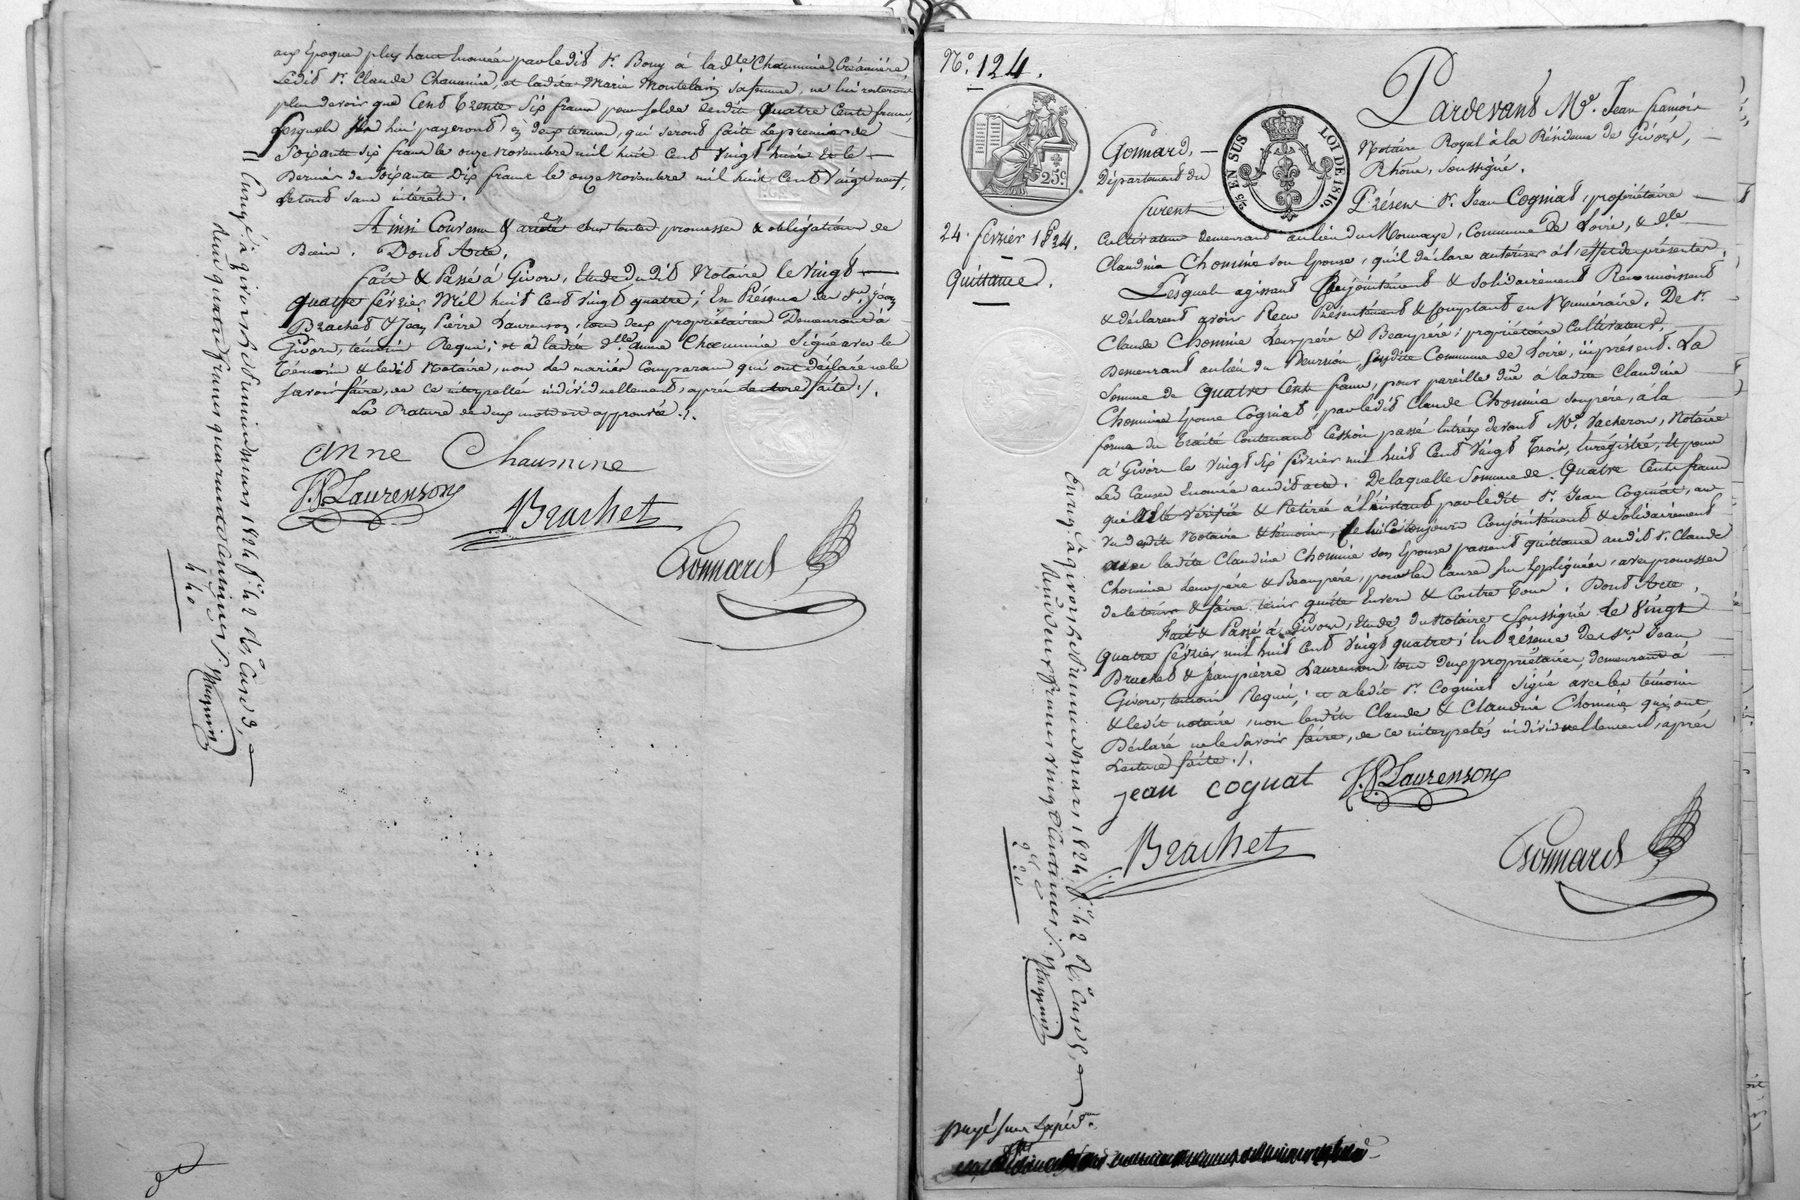 aux Epoques plus haut énoncées par ledit Sr. Bony à la dlle. Chaumine Créancière,
Ledit Sr. Claude Chaumine, et ladite Marie Montelain sa femme, ne lui resteront
plus devoir que Cent Trente Six francs pour solde desdits quatre Cents francs
Lesquels lui payeront en deux termes, qui seront faits le premier de
Soixante six francs le onze Novembre mil huit Cent Vingt huit Et le
Dernier de Soixante Dix francs le onze Novembre mil huit Cent Vingt neuf,
le tout sans intérêts.
Ainsi Convenu & arrêté sous toutes promesses & obligations de
Biens. Dont Acte,
Fait & Passé à Givors, Etude dudit Notaire le Vingt
quatre février Mil huit Cent Vingt quatre; En Présence de Srs. Jean
Brachet & Jean Pierre Laurenson, tous deux propriétaires Demeurant à
Givors, témoins Requis; et à ladite dlle. Anne Chaumine Signé avec les
Témoins & ledit Notaire, non les mariés Comparans qui ont déclaré ne le
savoir faire, de ce interpellés individuellement, après lecture faite ./.
La Rature de deux mots est approuvée ./.
anne Chaumine
J.P. Laurenson
Brachet
Gonnard
Enregé. à givors le deux mars 1824 fo. 42 Ro. Case 3,
Reçu quatre francs quarante centimes
4 40
No. 124.
25 c.
24. février 1824.
Quittance.
5/10 EN SUS
LOI DE 1816.
Pardevant Me. Jean françois
Gonnard, Notaire Royal à la Résidence de Givors,
Département du Rhône, Soussigné.
Furent Présens Sr. Jean Cognat, propriétaire
Cultivateur demeurant au lieu du Monnaye, Commune de Loire, & dlle
Claudine Chomine son épouse, qu'il déclare autoriser à l'effet des présentes
Lesquels agissant Conjointement & solidairement Reconnoissent
& déclarent avoir Reçu Présentement & Comptant en Numéraire. De Sr.
Claude Chomine Leur père & Beaupère, propriétaire Cultivateur,
Demeurant au lieu du susdite Commune de Loire, ici présent. La
Somme de Quatre Cents francs, pour pareille düe à ladite Claudine
Chomine épouse Cognat, par ledit Claude Chomine son père, à la
forme du Traité Contenant Cession passé entr'eux devant Me. Vacheron, Notaire
à Givors le Vingt Six février mil huit Cent Vingt Trois, Enregistré, & pour
Les Causes Enoncées audit acte. De laquelle Somme de Quatre Cents francs
qui a été Vérifiée & Retirée à l'instant par ledit Sr. Jean Cognat, au
Vu desdits Notaire & témoins, Celui Ci toujours Conjointement & solidairement
avec ladite Claudine Chomine son Epouse passent quittance audit Sr. Claude
Chomine Leur père & Beaupère, pour les Causes Sus Expliquées, avec promesses
de le tenir & faire tenir quitte Envers & Contre Tous. Dont Acte.
Fait & Passé à Givors, Etude du Notaire Soussigné Le Vingt
quatre février mil huit Cent Vingt quatre; En Présence de Srs. Jean
Brachet & Jean pierre Laurenson, tous deux propriétaires, demeurant à
Givors, témoins Requis; et a ledit Sr. Cognat Signé avec les témoins
& ledit notaire, non lesdits Claude & Claudine Chomine, qui ont
Déclaré ne le savoir faire, de ce interpelés individuellement, après
Lecture faite ./.
jean cognat
J.P. Laurenson
Brachet
Gonnard
Enregé. à givors le deux mars 1824, fo. 42 Ro. Case 5,
Reçu deux francs vingt centimes
2 20
payé sur Expedon.